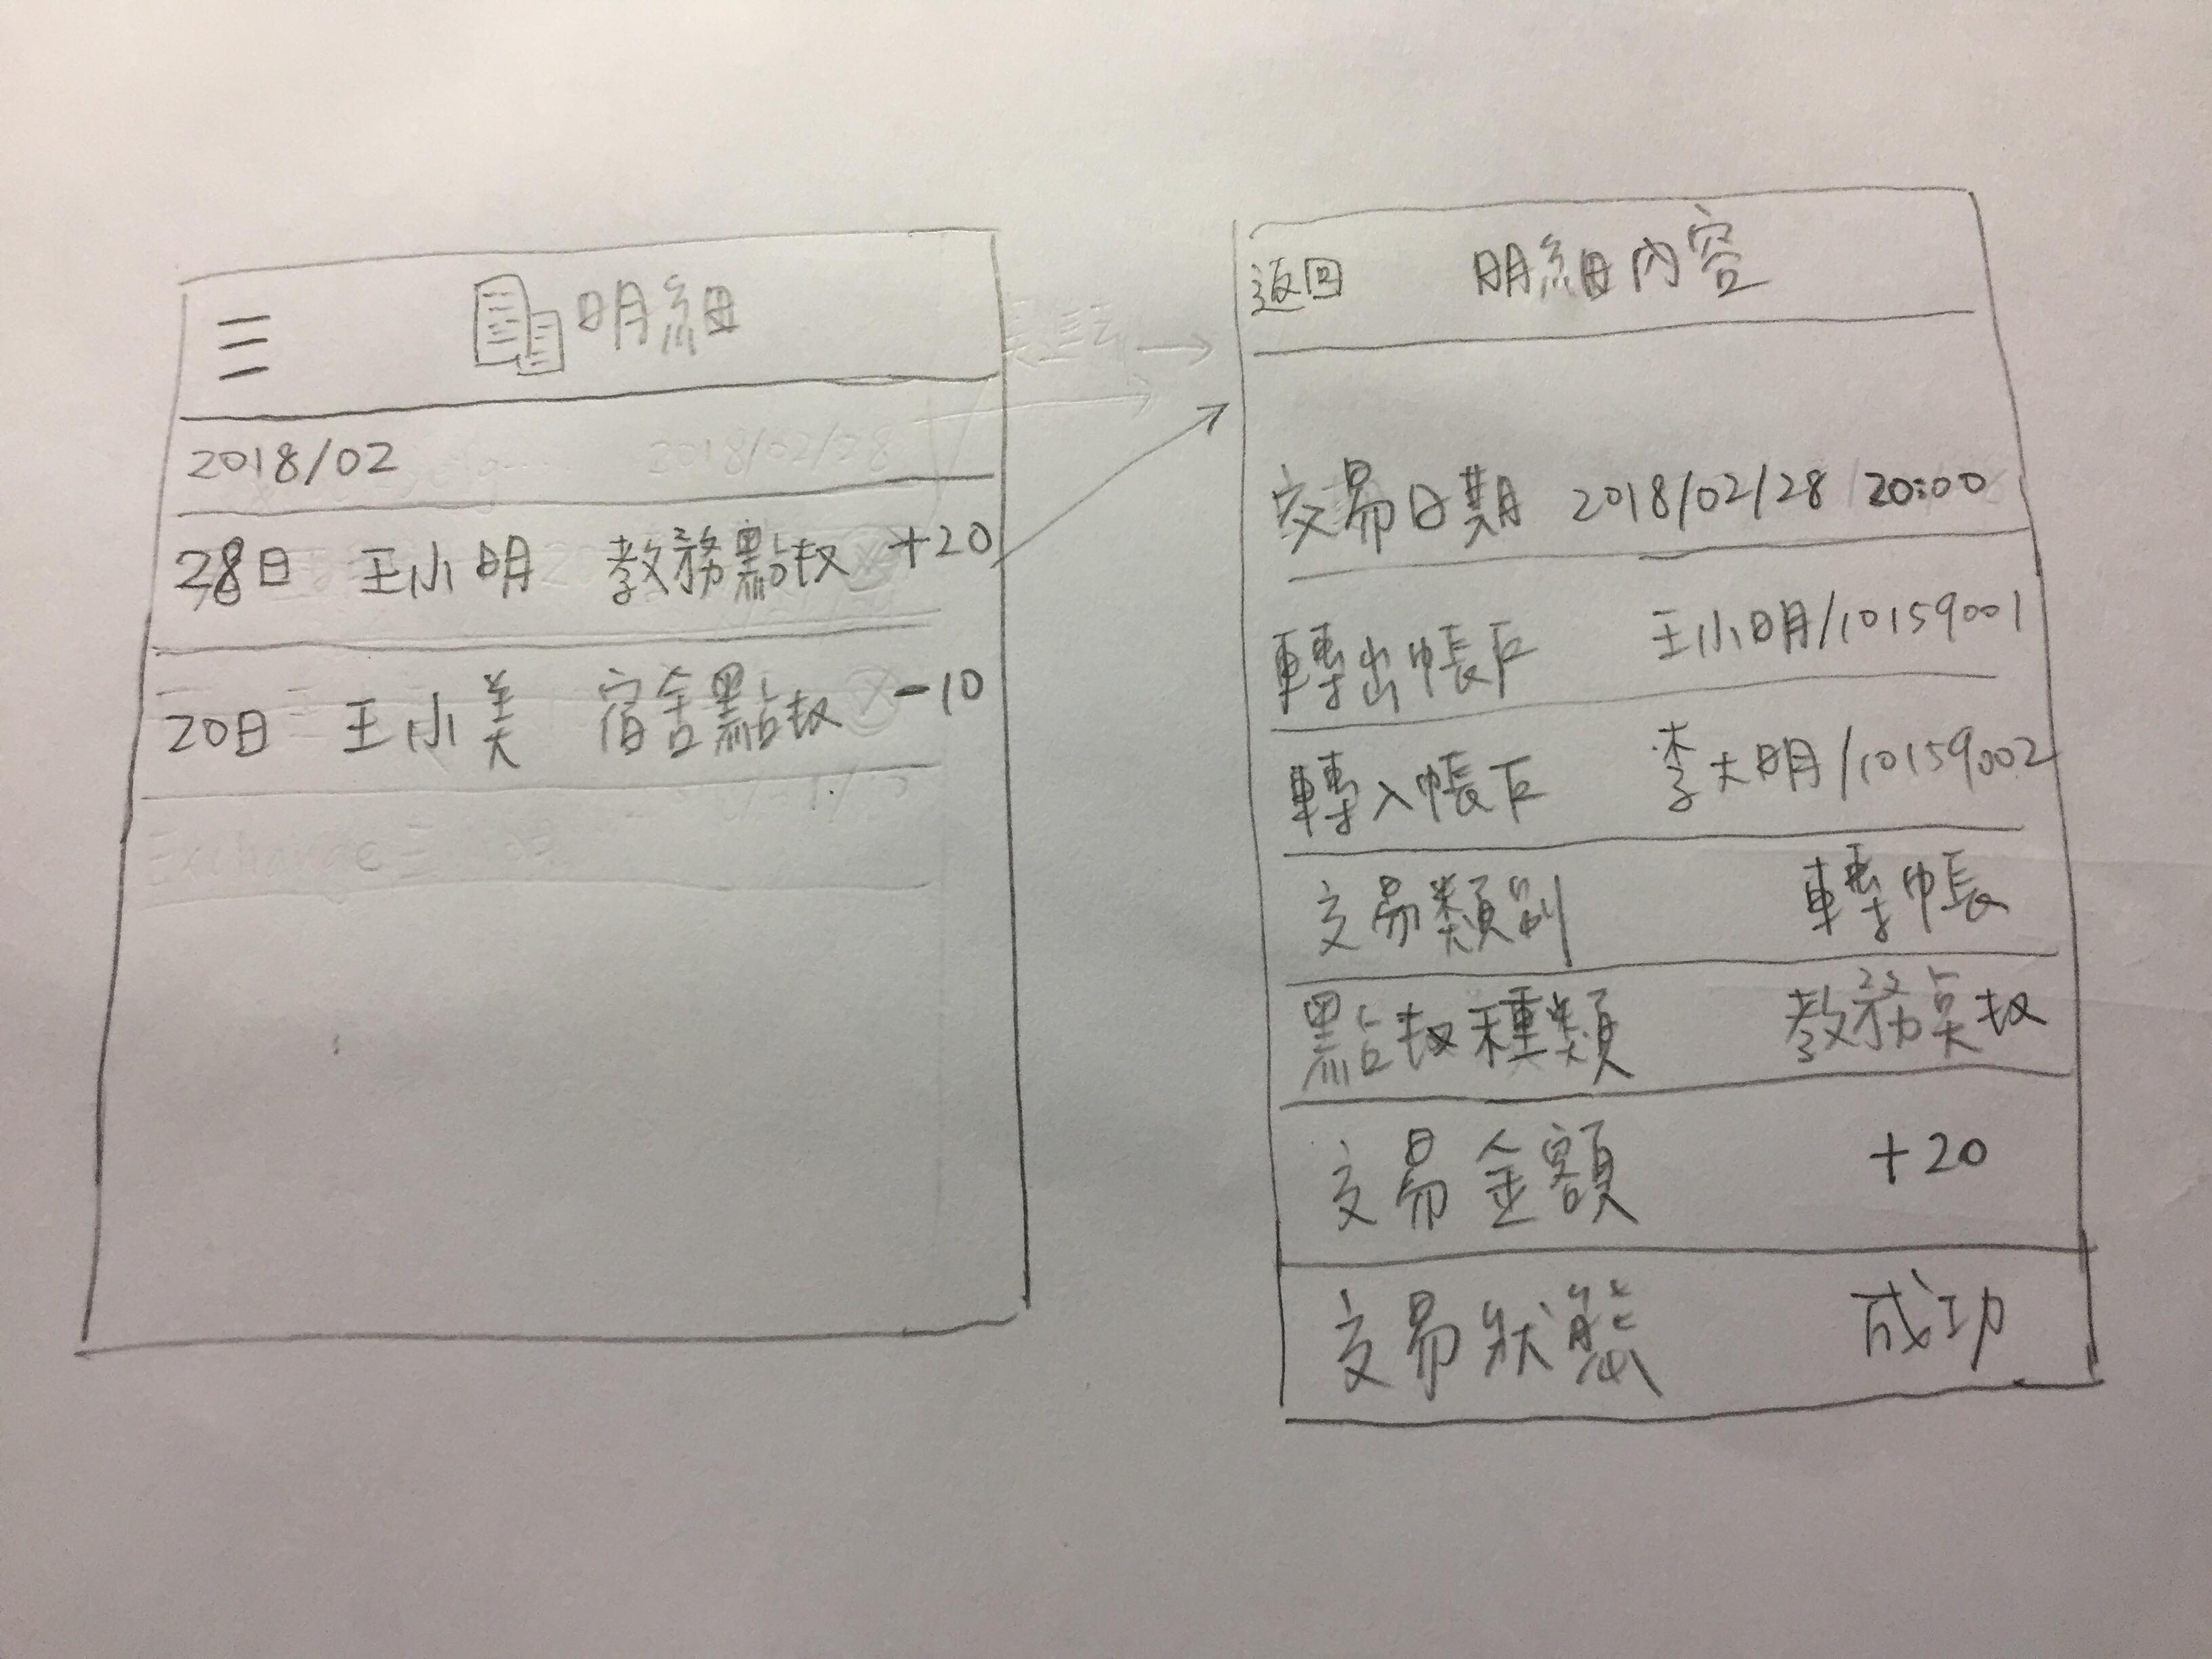 明細
2018/02
28日 王小明 教務點数 +20
20日 王小美 宿舍點数 -10
返回 明細內容
交易日期 2018/02/28 20:00
轉出帳戶 王小明/10159001
轉入帳戶 李大明/10159002
交易類別 轉帳
點数種類 教務点数
交易金額 +20
交易狀態 成功